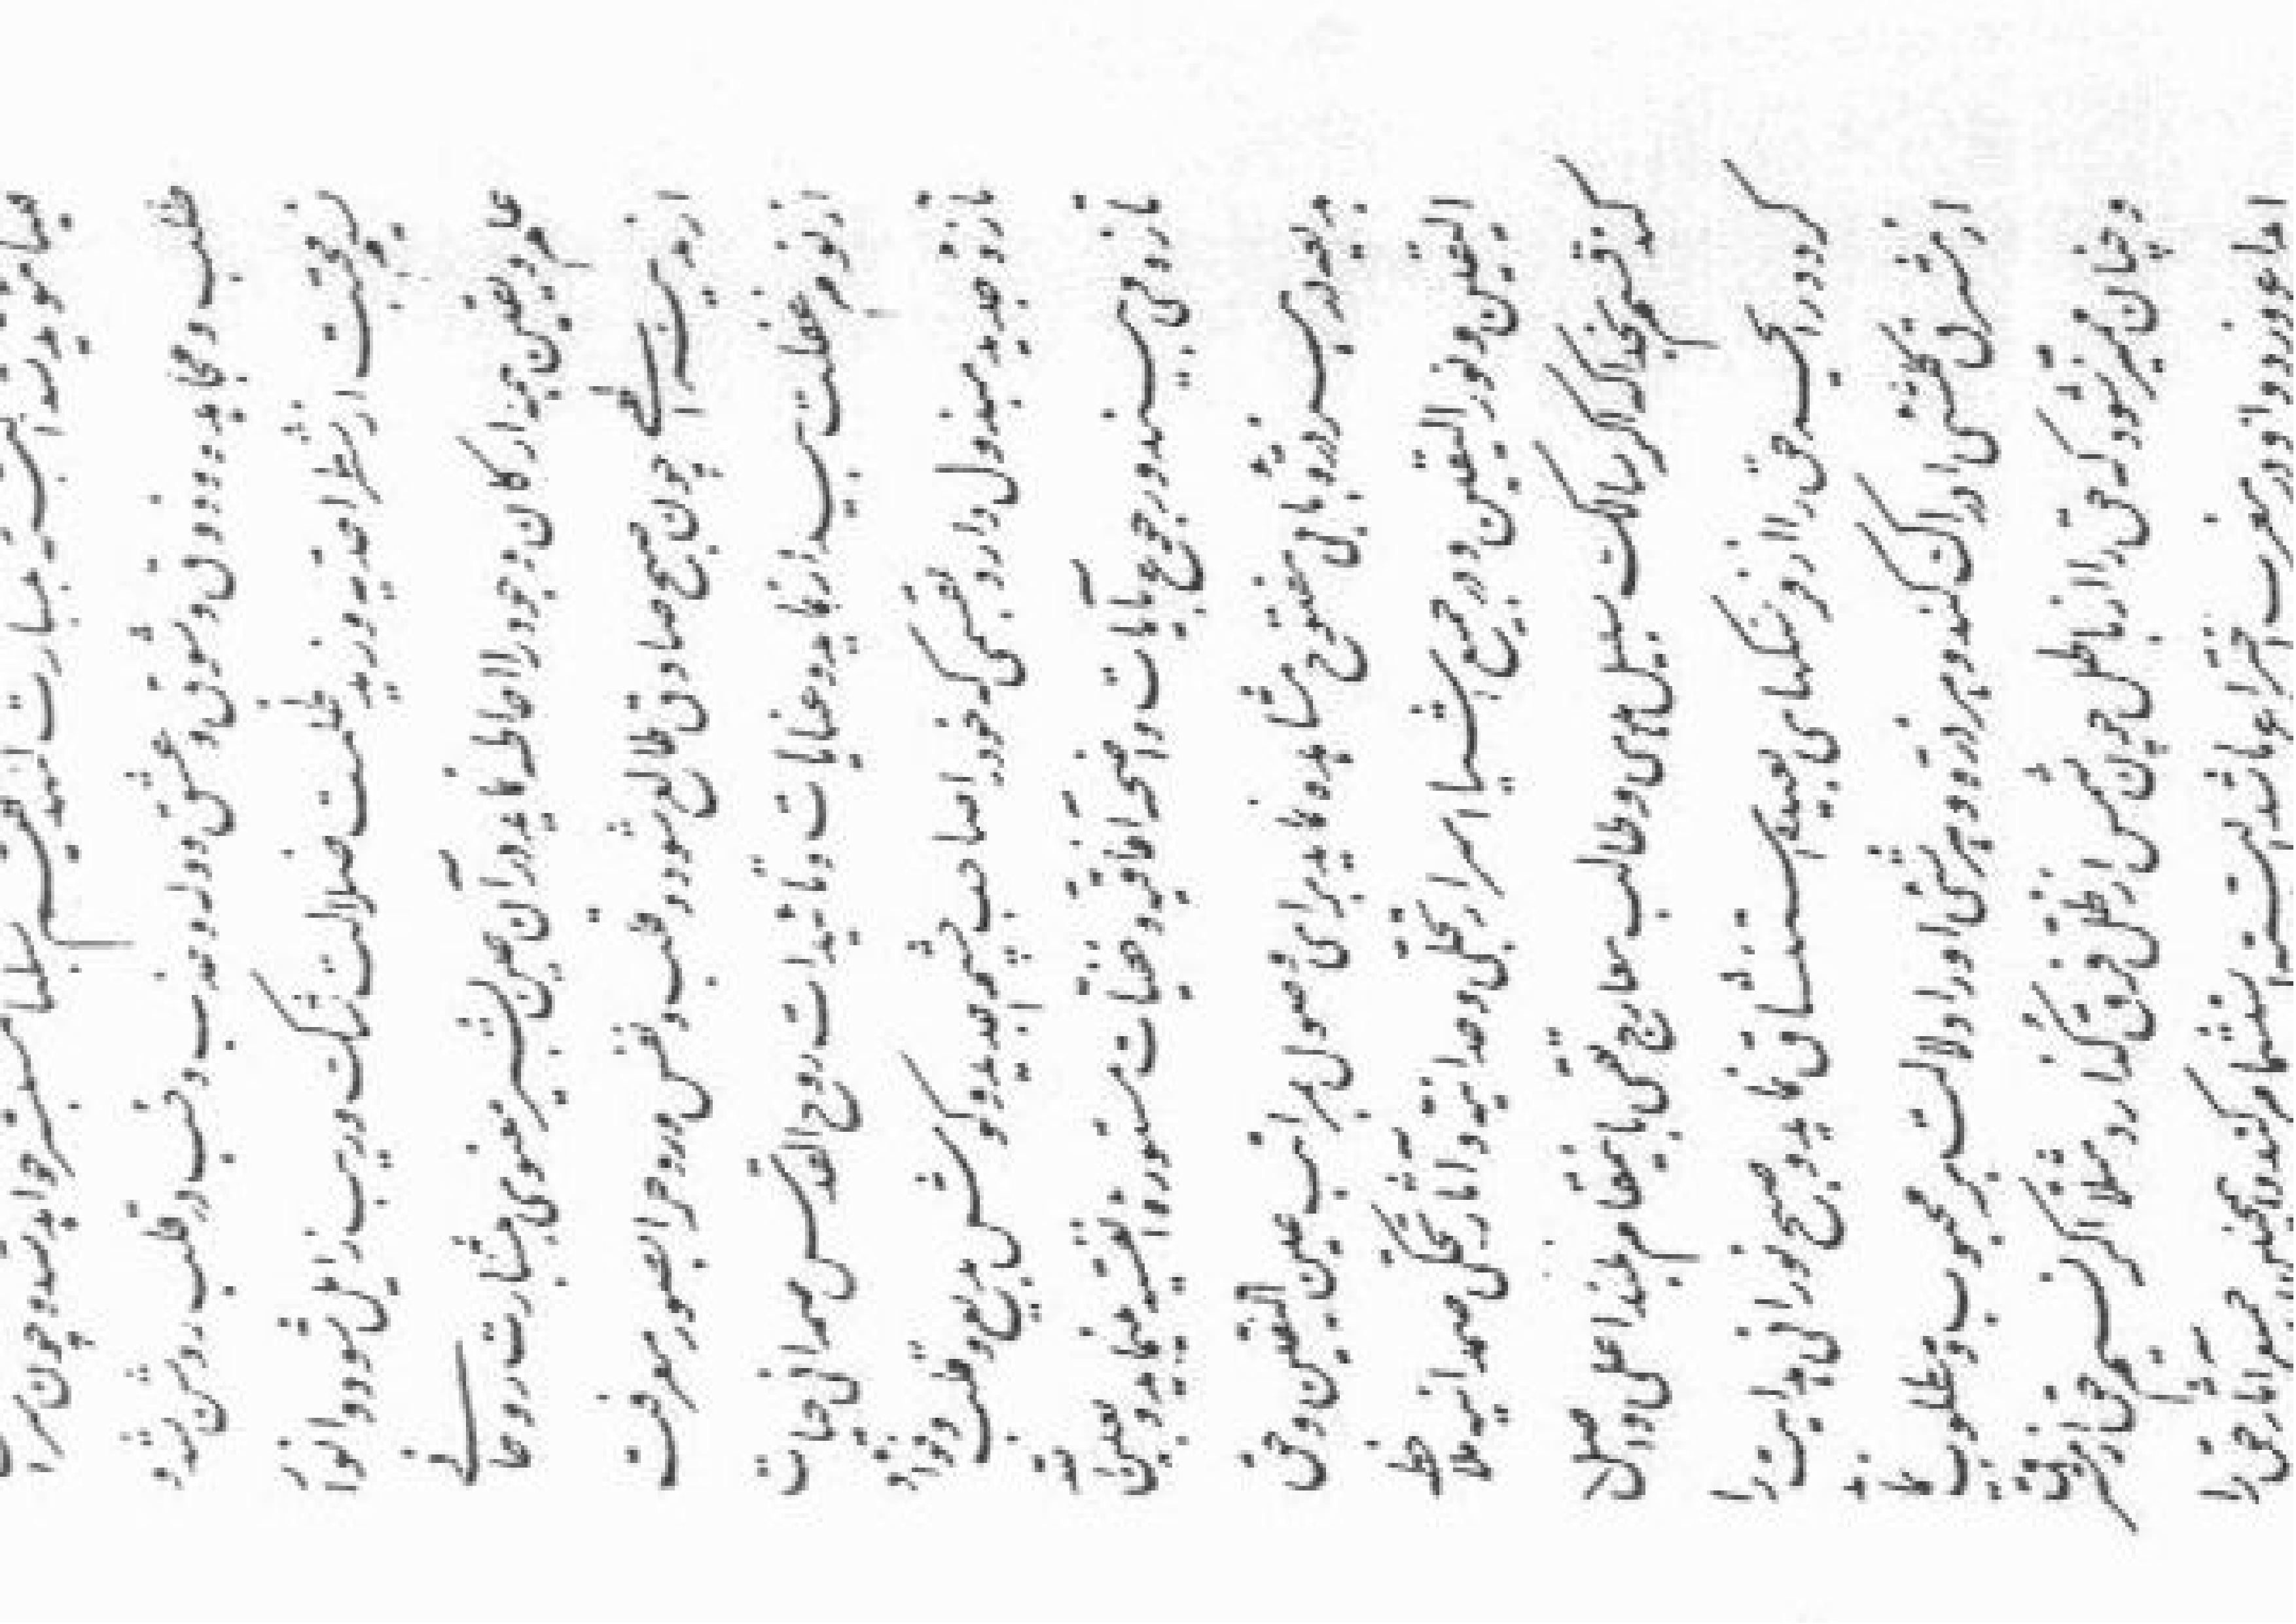 فینا مؤید شد البته به بشارت لنهدینهم سبلنا مستبشر خواهد شد و چون سراج
طلب و مجاهده و ذوق و شوق و عشق و وله و جذب و حب در قلب روشن شد و
نسیم محبت از شطر احدیه وزید ظلمت ضلالت شک و ریب زایل شود و انوار
علم و یقین همه ارکان وجود را احاطه نماید در آن حین بشیر معنوی به بشارت روحانی
از مدینه الهی چون صبح صادق طالع شود و قلب و نفس و روح را بصور معرفت
از نوم غفلت بیدار نماید و عنایات و تأییدات روح القدس صمدانی حیات
تازه جدید مبذول دارد بقسمی که خود را صاحب چشم جدید و گوش بدیع و قلب و فؤاد
تازه می بیند و رجوع بآیات واضحه آفاقیه و خفیات مستوره انفسیه مینماید و بعین الله
بدیعه در هر ذره بابی مفتوح مشاهده نماید برای وصول بمراتب عین الیقین و حق
الیقین و نور الیقین و در جمیع اشیا اسرار تجلی وحدانیه و آثار تجلی صمدانیه ملاحظه
کند قسم بخدا که اگر سالک سبیل هدی و طالب معارج تقی باین مقام بلند اعلی واصل
گردد رایحه حق را از فرسنگهای بعیده استنشاق نماید و صبح نورانی هدایت را
از مشرق کلشی ادراک کند و هر ذره و هر شی او را دلالت بر محبوب و مطلوب نماید
و چنان ممیز شود که حق را از باطل چون شمس از ظل فرق گذارد مثلا اگر نسیم حق از مشرق
ابداع وزد و او در مغرب اختراع باشد البته استشمام کند و همچنین جمیع آثار حق را